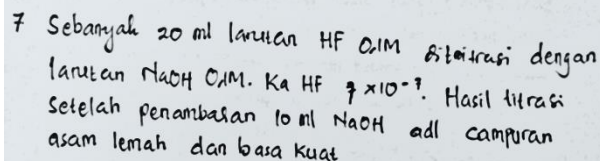 7 Sebanyak 20 ml larutan HF 0,1M dititrasi dengan
larutan NaOH 0,1M. Ka HF 7 × 10⁻⁷. Hasil titrasi
setelah penambahan 10 ml NaOH adl campuran
asam lemah dan basa kuat